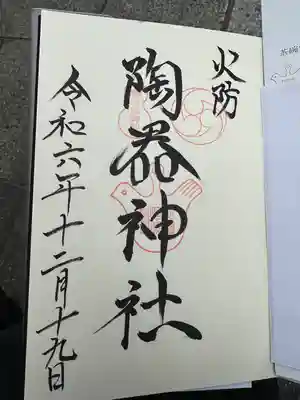 火防
陶器神社
令和六年十二月十九日
茶碗